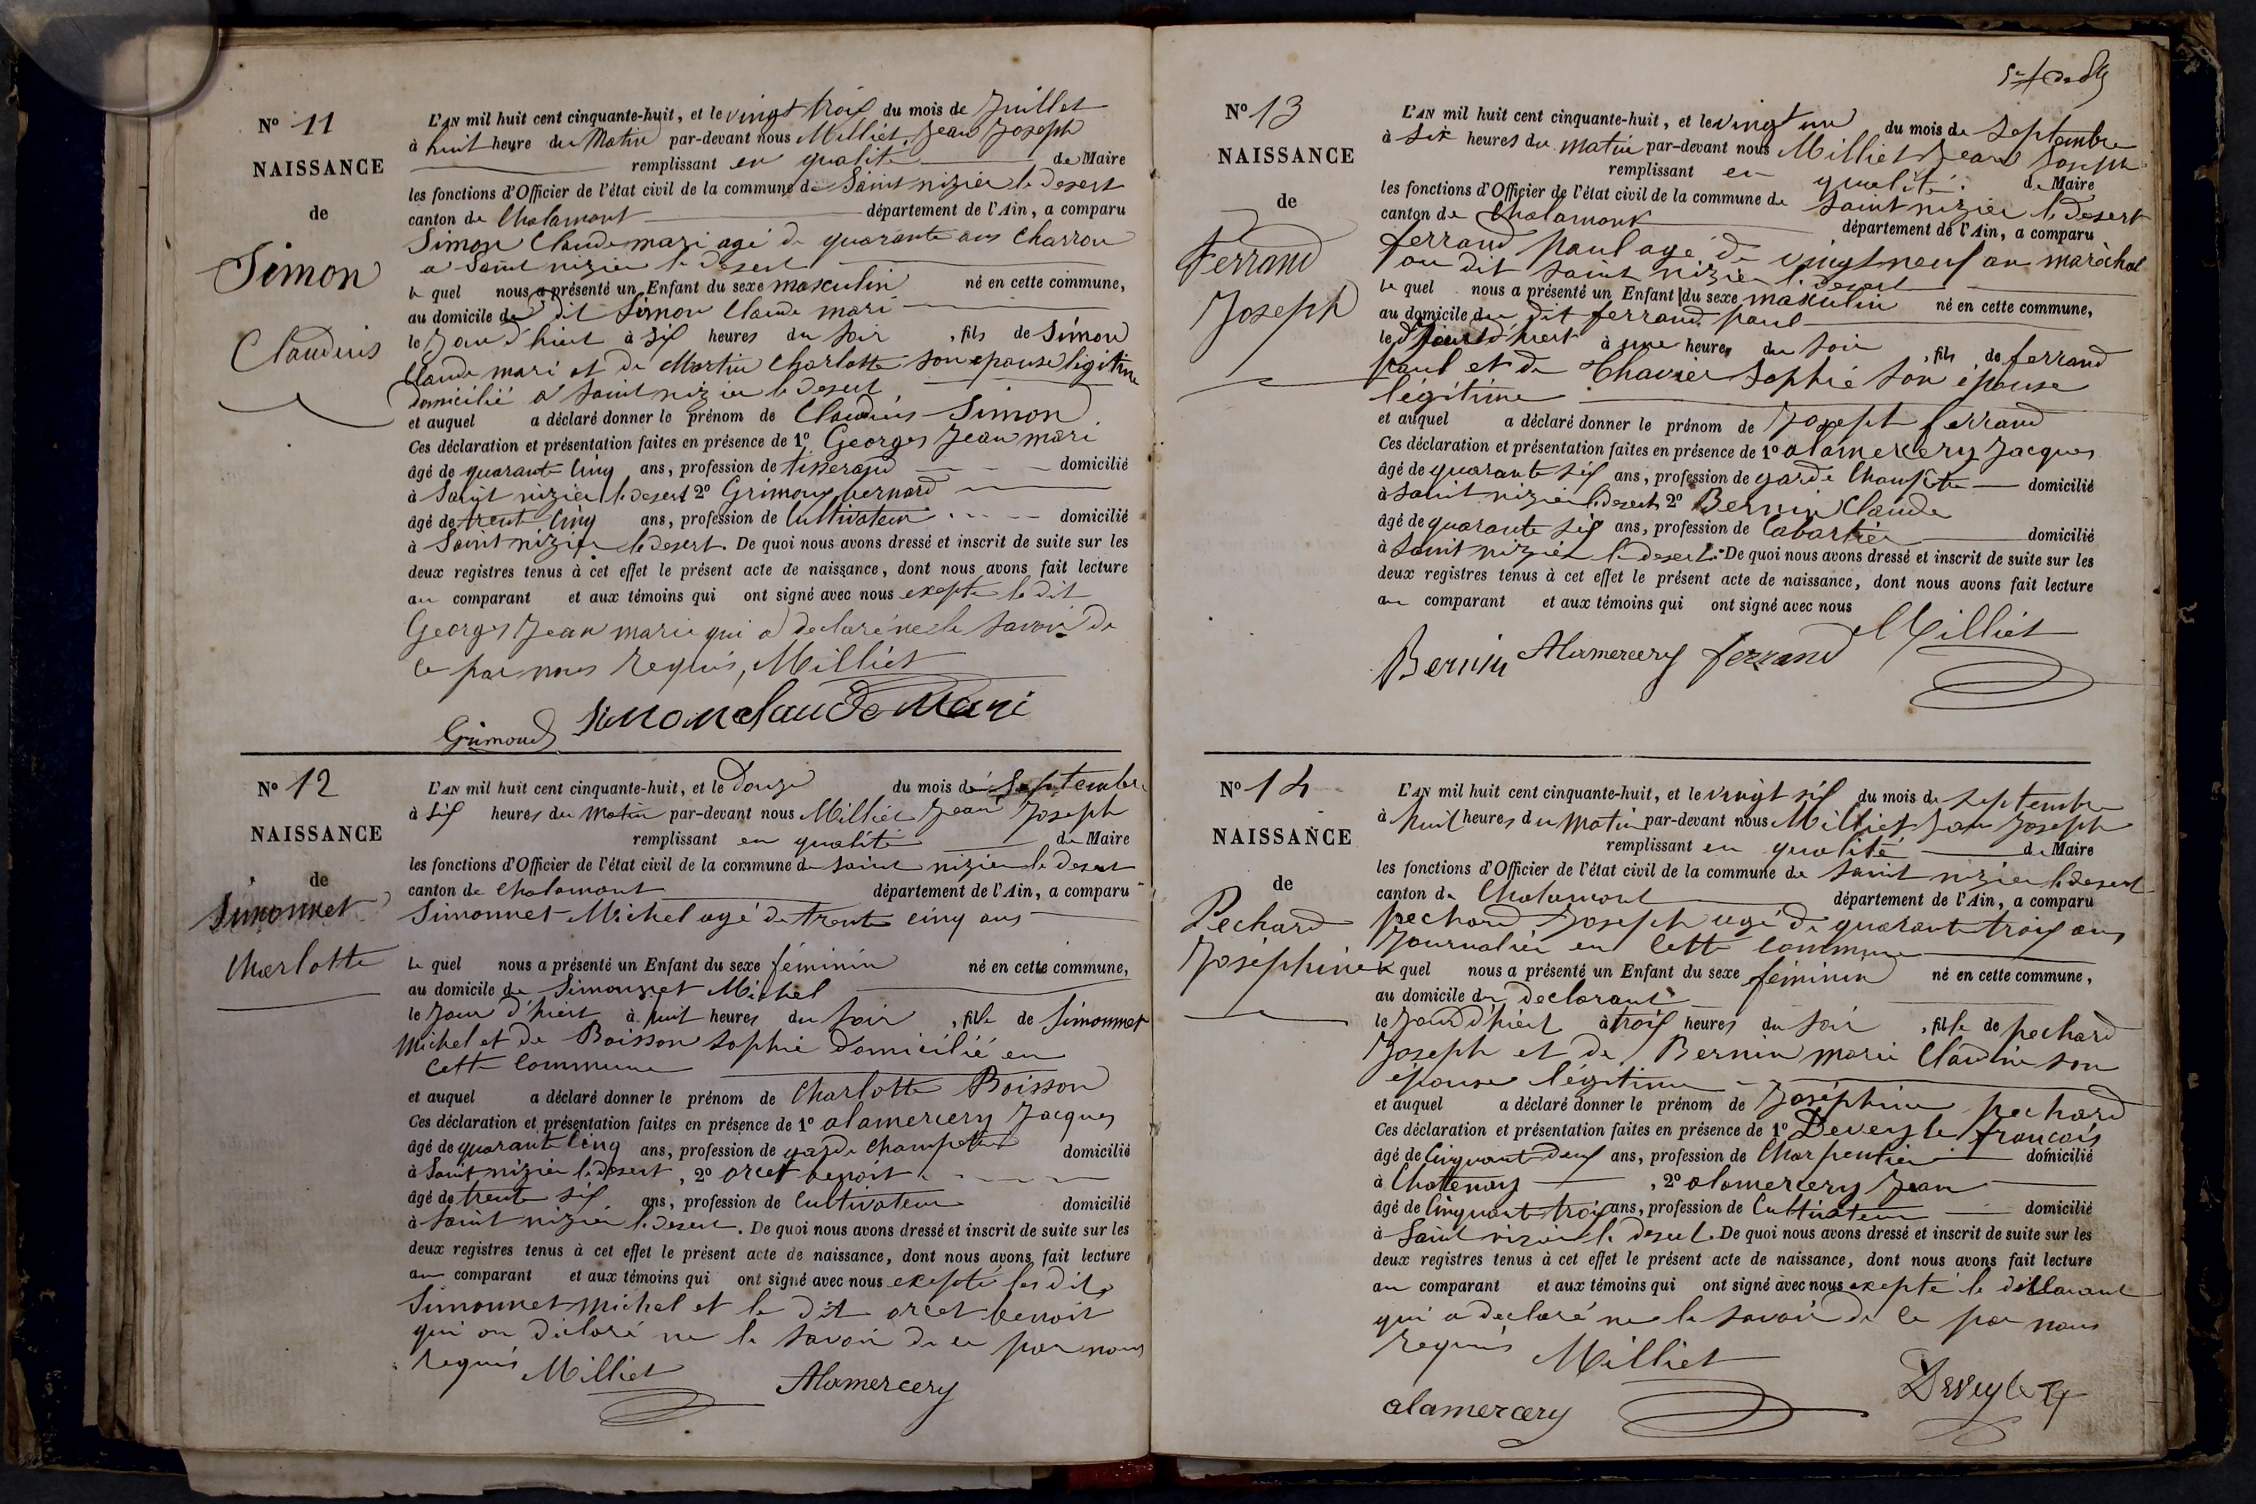 N° 11
NAISSANCE
de
Simon
Claudius
L'AN mil huit cent cinquante-huit, et le vingt trois du mois de Juillet
à huit heure du Matin par-devant nous Milliet Jean Joseph
remplissant en qualité de Maire
les fonctions d'Officier de l'état civil de la commune de Saint nizier le Desert
canton de Chalamont département de l'Ain, a comparu
Simon Claude mari agé de quarante ans Charron
a Saint nizier le desert
le quel nous a présenté un Enfant du sexe masculin né en cette commune,
au domicile du dit Simon Claude mari
le Jour d'hiert à six heures du soir, fils de Simon
Claude mari et de Martin Charlotte son epouse légitime
domicilié a Saint nizier le desert
et auquel a déclaré donner le prénom de Claudius Simon
Ces déclaration et présentation faites en présence de 1° Georges Jean mari
âgé de quarante cinq ans, profession de tisserand domicilié
à Saint nizier le desert 2° Grimoud bernard
âgé de trente cinq ans, profession de Cultivateur domicilié
à Saint nizier le desert. De quoi nous avons dressé et inscrit de suite sur les
deux registres tenus à cet effet le présent acte de naissance, dont nous avons fait lecture
au comparant et aux témoins qui ont signé avec nous exepté le dit
Georges Jean marie qui a declaré ne le savoir de
ce par nous requis, Milliet
Simon claude Mari
Grimoud
N° 12
NAISSANCE
de
Simonnet
Charlotte
L'AN mil huit cent cinquante-huit, et le Douze du mois de Septembre
à six heures du Matin par-devant nous Milliet Jean Joseph
remplissant en qualité de Maire
les fonctions d'Officier de l'état civil de la commune de saint nizier le desert
canton de Chalamont département de l'Ain, a comparu
Simonnet Michel agé de trente cinq ans
le quel nous a présenté un Enfant du sexe féminin né en cette commune,
au domicile de Simonnet Michel
le Jour d'hiert à huit heures du soir, fille de Simonnet
Michel et de Boisson Sophie domicilié en
cette commune
et auquel a déclaré donner le prénom de Charlotte Boisson
Ces déclaration et présentation faites en présence de 1° alamercery Jacques
âgé de quarante cinq ans, profession de garde champetre domicilié
à Saint nizier le desert, 2° orcet benoit
âgé de trente six ans, profession de Cultivateur domicilié
à Saint nizier le desert. De quoi nous avons dressé et inscrit de suite sur les
deux registres tenus à cet effet le présent acte de naissance, dont nous avons fait lecture
au comparant et aux témoins qui ont signé avec nous exepté les dits
Simonnet Michel et le dit orcet benoit
qui on déclaré ne le savoir de ce par nous
requis Milliet
Alamercery
N° 13
NAISSANCE
de
Ferrand
Joseph
L'AN mil huit cent cinquante-huit, et le vingt un du mois de Septembre
à six heures du matin par-devant nous Milliet Jean Joseph
remplissant en qualité de Maire
les fonctions d'Officier de l'état civil de la commune de Saint nizier le desert
canton de Chalamont département de l'Ain, a comparu
ferrand paul agé de vingt neuf an maréchal
au dit saint nizier le desert
le quel nous a présenté un Enfant du sexe masculin né en cette commune,
au domicile du dit ferrand paul
le Jour d'hiert à une heures du soir, fils de ferrand
paul et de Sophie son épouse
légitime
et auquel a déclaré donner le prénom de Joseph ferrand
Ces déclaration et présentation faites en présence de 1° alamercery Jacques
âgé de quarante six ans, profession de garde Champêtre domicilié
à Saint nizier le desert 2° Bernin Claude
âgé de quarante six ans, profession de Cabartier domicilié
à Saint nizier le desert. De quoi nous avons dressé et inscrit de suite sur les
deux registres tenus à cet effet le présent acte de naissance, dont nous avons fait lecture
au comparant et aux témoins qui ont signé avec nous
Milliet
Bernin Alamercery ferrand
N° 14
NAISSANCE
de
Pechard
Joséphine
L'AN mil huit cent cinquante-huit, et le vingt six du mois de Septembre
à huit heures du Matin par-devant nous Milliet Jean Joseph
remplissant en qualité de Maire
les fonctions d'Officier de l'état civil de la commune de Saint nizier le desert
canton de Chalamont département de l'Ain, a comparu
pechard Joseph agé de quarante trois ans
Journalier en cette commune
le quel nous a présenté un Enfant du sexe féminin né en cette commune,
au domicile du declarant
le Jour d'hiert à trois heures du soir, fille de pechard
Joseph et de Bernin marie Claudine son
épouse légitime
et auquel a déclaré donner le prénom de Joséphine pechard
Ces déclaration et présentation faites en présence de 1° Deveyle francois
âgé de Cinquante deux ans, profession de Charpentier domicilié
à Chatenay, 2° alamercery Jean
âgé de Cinquante trois ans, profession de Cultivateur domicilié
à Saint nizier le desert. De quoi nous avons dressé et inscrit de suite sur les
deux registres tenus à cet effet le présent acte de naissance, dont nous avons fait lecture
au comparant et aux témoins qui ont signé avec nous exepté le déclarant
qui a declaré ne le savoir de ce par nous
requis Milliet
alamercery